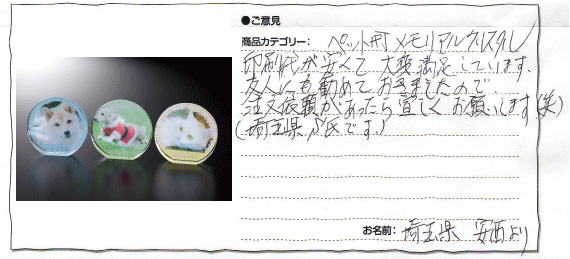 ●ご意見
商品カテゴリー： ペット用メモリアルクリスタル
印刷代が安くて大変満足しています。
友人にも勧めておきましたので
注文依頼があったら宜しくお願いします(笑)
(埼玉県 氏です。)
お名前： 埼玉県 安西より